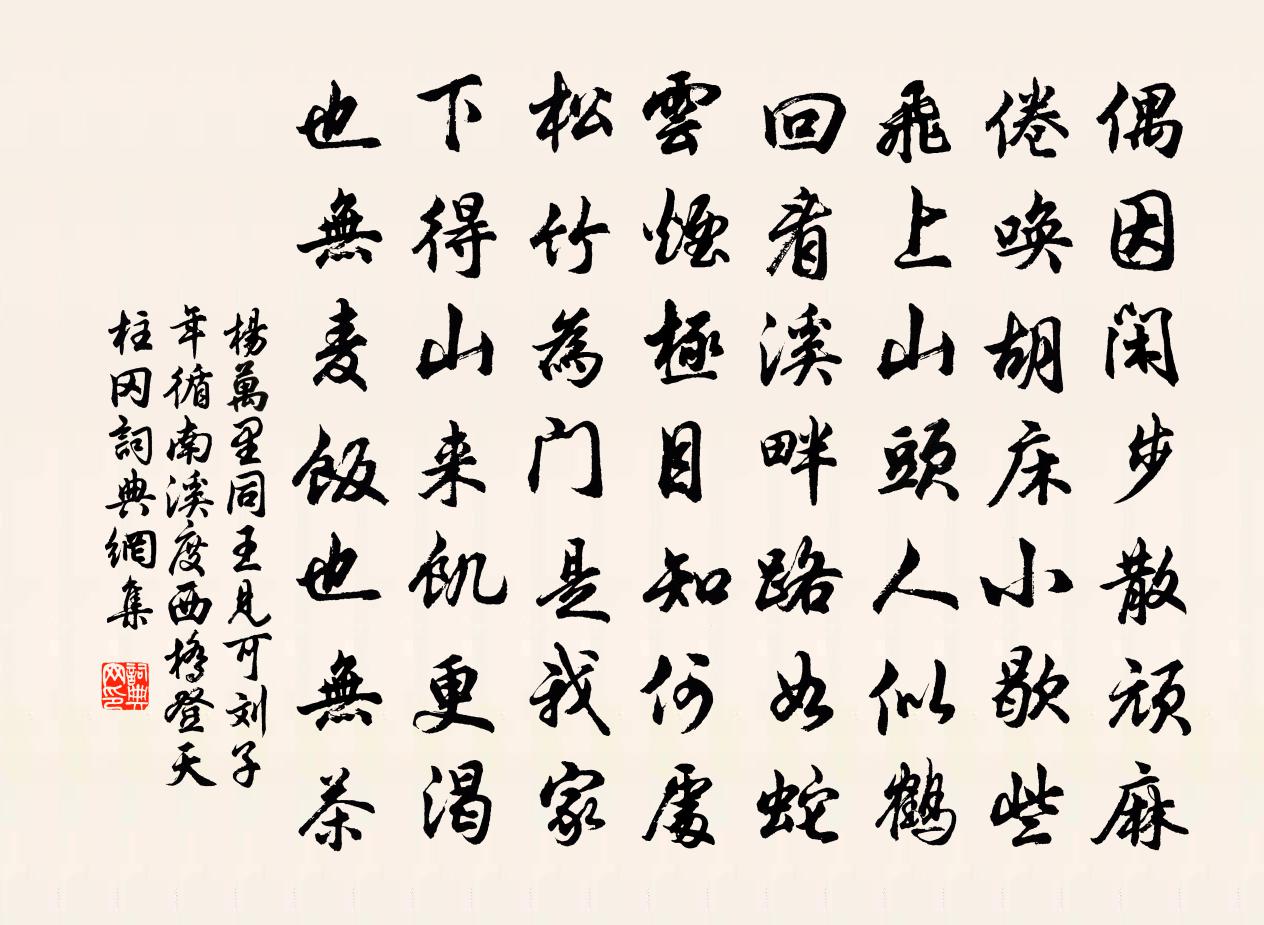 偶因閑步散頑麻
倦喚胡床小歇些
飛上山頭人似鶴
回看溪畔路如蛇
雲煙極目知何處
松竹為门是我家
下得山来飢更渴
也無麦飯也無茶
楊萬里同王見可刘子
年循南溪度西橋登天
柱冈詞典網集
詞典